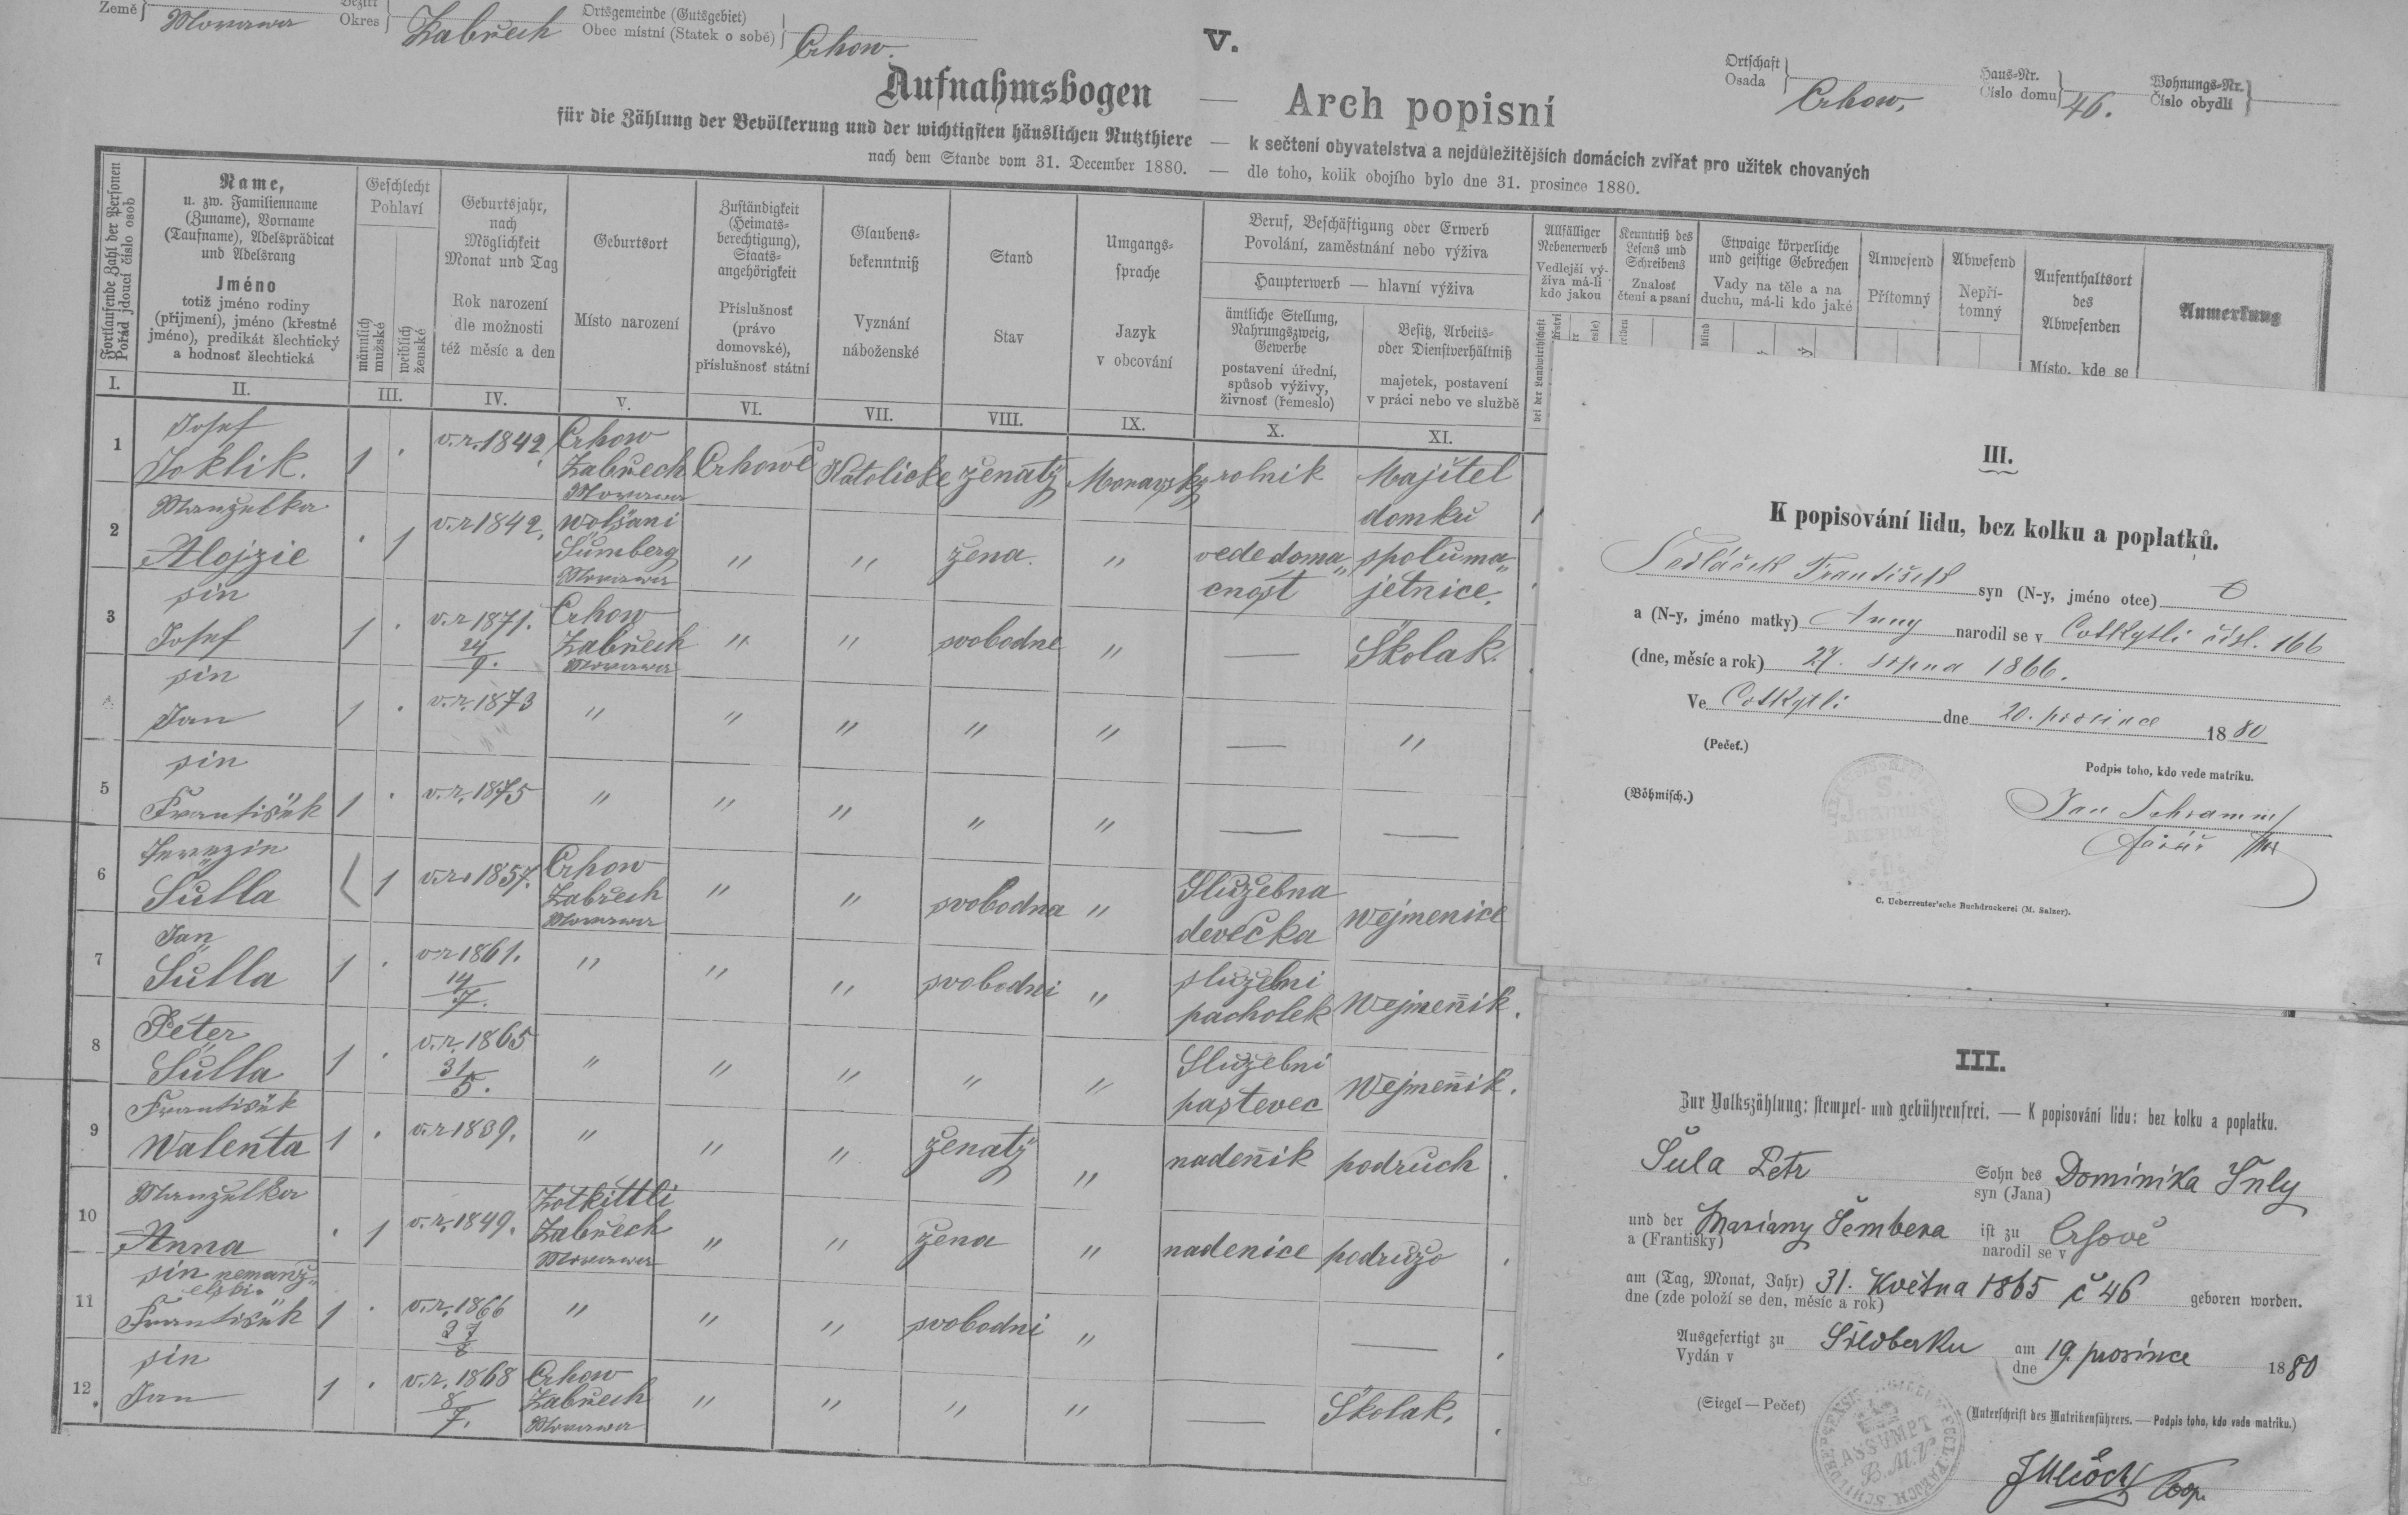 Země
Morawa
Bezirk
Okres
Zabřech
Ortsgemeinde (Gutsgebiet)
Obec místní (Statek o sobě)
Crhow.
V.
Ortschaft
Osada
Crhow,
Haus-Nr.
Číslo domu
46.
Wohnungs-Nr.
Číslo obydlí
Aufnahmsbogen — Arch popisní
für die Zählung der Bevölkerung und der wichtigsten häuslichen Nutzthiere — k sečtení obyvatelstva a nejdůležitějších domácích zvířat pro užitek chovaných
nach dem Stande vom 31. December 1880. — dle toho, kolik obojího bylo dne 31. prosince 1880.
Fortlaufende Zahl der Personen
Pořád jdoucí číslo osob
I.
Name,
u. zw. Familienname
(Zuname), Vorname
(Taufname), Adelsprädicat
und Adelsrang
Jméno
totiž jméno rodiny
(přijmení), jméno (křestné
jméno), predikát šlechtický
a hodnosť šlechtická
II.
Geschlecht
Pohlaví
männlich
mužské
weiblich
ženské
III.
Geburtsjahr,
nach
Möglichkeit
Monat und Tag
Rok narození
dle možnosti
též měsíc a den
IV.
Geburtsort
Místo narození
V.
Zuständigkeit
(Heimats-
berechtigung),
Staats-
angehörigkeit
Příslušnosť
(právo
domovské),
příslušnosť státní
VI.
Glaubens-
bekenntniß
Vyznání
náboženské
VII.
Stand
Stav
VIII.
Umgangs-
sprache
Jazyk
v obcování
IX.
Beruf, Beschäftigung oder Erwerb
Povolání, zaměstnání nebo výživa
Haupterwerb — hlavní výživa
ämtliche Stellung,
Nahrungszweig,
Gewerbe
postavení úřední,
spůsob výživy,
živnosť (řemeslo)
X.
Besitz, Arbeits-
oder Dienstverhältniß
majetek, postavení
v práci nebo ve službě
XI.
Allfälliger
Nebenerwerb
Vedlejší vý-
živa má-li
kdo jakou
bei der Landwirthschaft
Kenntniß des
Lesens und
Schreibens
Znalosť
čtení a psaní
Etwaige körperliche
und geistige Gebrechen
Vady na těle a na
duchu, má-li kdo jaké
blind
Anwesend
Přítomný
Abwesend
Nepří-
tomný
Aufenthaltsort
des
Abwesenden
Místo, kde se
Anmerkung
1
Josef
Joklik.
1
v.r. 1842,
Crhow
Zabřech
Morawa
Crhowě
Katolicke
ženatÿ
Moravskÿ
rolnik
Majitel
domku
2
Manzelka
Alojzie
1
v.r 1842,
Wolšani
Šumberg
Morawa
"
"
žena.
"
vede doma„
cnost
spoluma„
jetnice.
3
sin
Josef
1
v.r 1871.
24
9.
Crhow
Zabřech
Morawa
"
"
svobodne
"
—
Školak.
sin
Jan
1
v.r. 1873
"
"
"
"
"
—
"
5
sin
Františěk
1
v.r. 1875
"
"
"
"
"
—
—
6
Terezie
Šulla
1
v.r. 1857.
Crhow
Zabřech
Morawa
"
"
svobodna
"
Služebna
devečka
wejmenice
7
Jan
Šulla
1
v r 1861.
14
7.
"
"
"
svobodni
"
služebni
pacholek
Wejmeňik.
8
Peter
Šulla
1
v.r. 1865
31
5.
"
"
"
"
"
Služebni
pastevec
Wejmeňik.
9
Františěk
Walenta
1
v.r 1839.
"
"
"
ženatÿ
"
nadeňik
podruch
10
Manzelka
Anna
1
v.r. 1849.
Zotkittli
Zabřech
Morawa
"
"
žena
"
nadenice
podružo
11
sin nemanž„
elski.
Františěk
1
v.r. 1866
27
8
"
"
"
svobodni
"
—
12
sin
Jan
1
v.r. 1868
8
7.
Crhow
Zabřech
Morawa
"
"
"
"
—
Školak,
III.
K popisování lidu, bez kolku a poplatků.
Sedláček František syn (N-y, jméno otce)
a (N-y, jméno matky) Anny narodil se v Cotkytli čísl. 166
(dne, měsíc a rok) 27. srpna 1866.
Ve Cotkytli dne 20. prosince 1880
(Pečeť.)
Podpis toho, kdo vede matriku.
(Böhmisch.)
Jan Schramm
farář
C. Ueberreuter'sche Buchdruckerei (M. Salzer).
III.
Zur Volkszählung: stempel- und gebührenfrei. — K popisování lidu: bez kolku a poplatku.
Šula Petr Sohn des Dominika Šuly
syn (Jana)
und der Mariany Šembera ist zu Crhově
a (Františky) narodil se v
am (Tag, Monat, Jahr) 31. Května 1865 č 46 geboren worden.
dne (zde položí se den, měsíc a rok)
Ausgefertigt zu Šilberku am 19. prosince 1880
Vydán v dne
(Siegel — Pečeť)
(Unterschrift des Matrikenführers. — Podpis toho, kdo vede matriku.)
ASSUMPT
B.M.V.